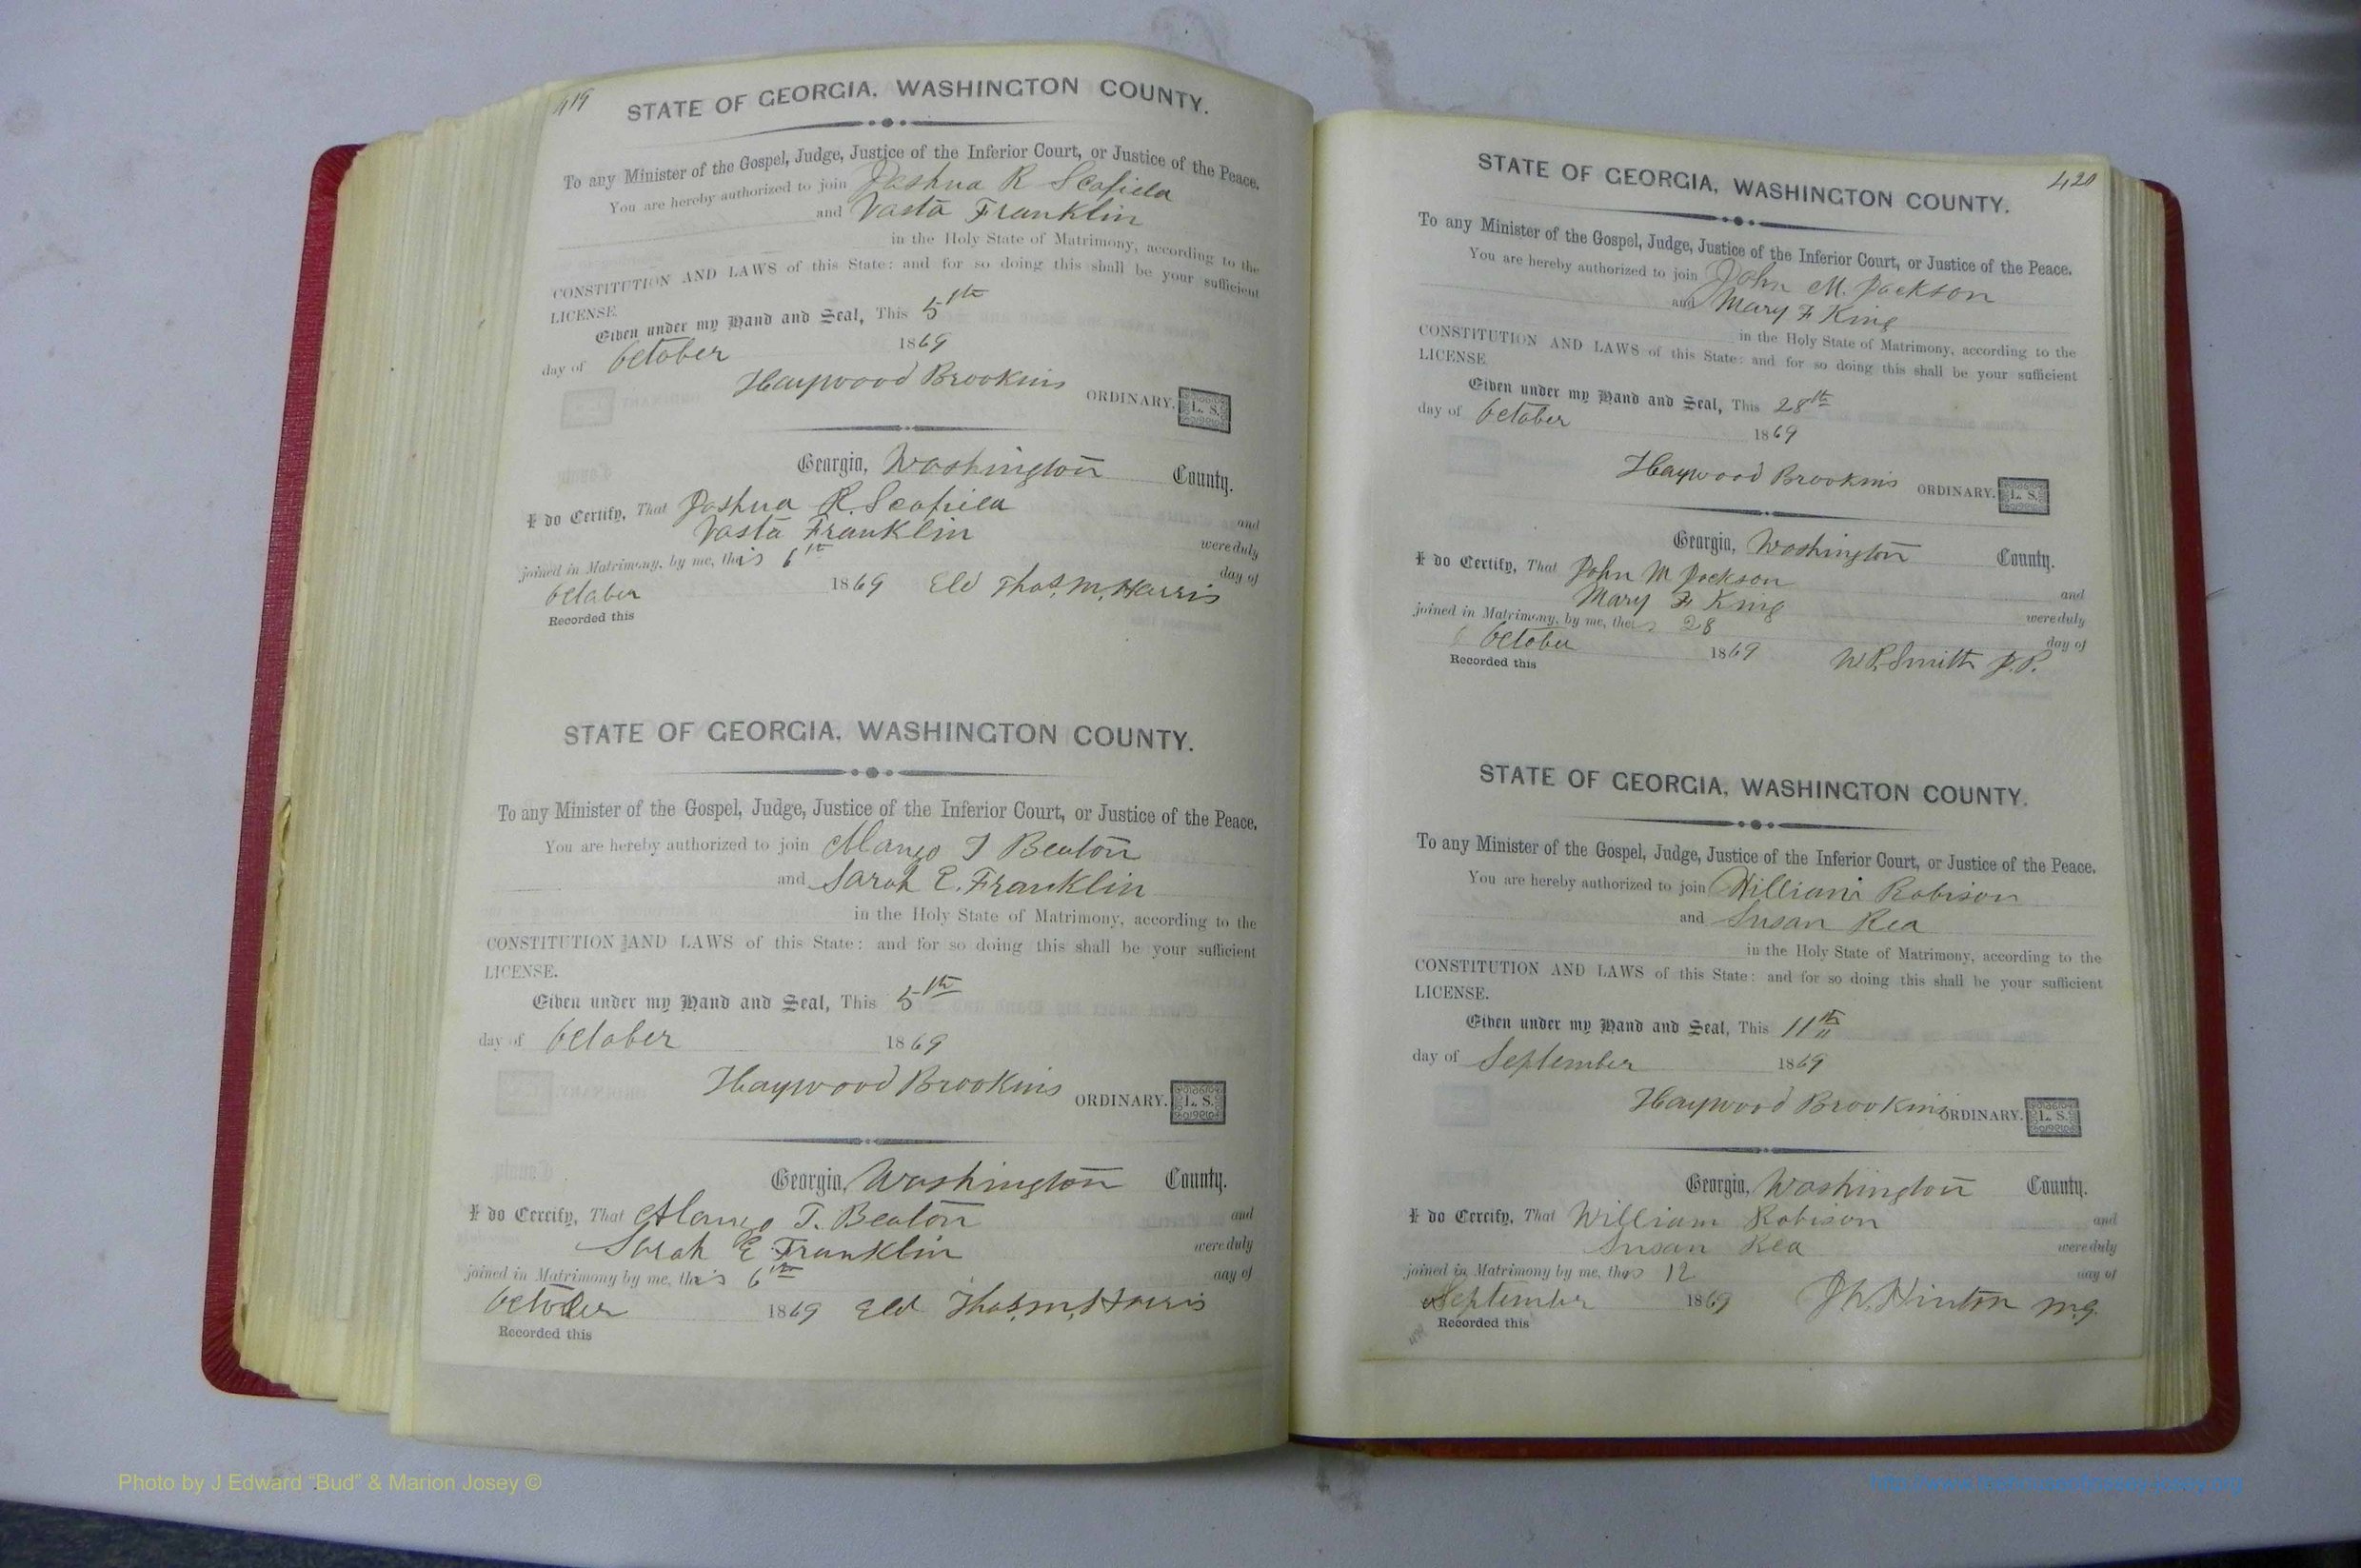 419
STATE OF GEORGIA, WASHINGTON COUNTY.
To any Minister of the Gospel, Judge, Justice of the Inferior Court, or Justice of the Peace.
You are hereby authorized to join Joshua R Scofield
and Vasta Franklin
in the Holy State of Matrimony, according to the
CONSTITUTION AND LAWS of this State: and for so doing this shall be your sufficient
LICENSE.
Given under my Hand and Seal, This 5th
day of October 1869
Haywood Brookins ORDINARY. L. S.
Georgia, Washington County.
I do Certify, That Joshua R. Scofield and
Vasta Franklin were duly
joined in Matrimony, by me, this 6th day of
October 1869 Eld Thos. M. Harris
Recorded this
STATE OF GEORGIA, WASHINGTON COUNTY.
To any Minister of the Gospel, Judge, Justice of the Inferior Court, or Justice of the Peace.
You are hereby authorized to join T Beaton
and Sarah E. Franklin
in the Holy State of Matrimony, according to the
CONSTITUTION AND LAWS of this State: and for so doing this shall be your sufficient
LICENSE.
Given under my Hand and Seal, This 5th
day of October 1869
Haywood Brookins ORDINARY. L. S.
Georgia, Washington County.
I do Certify, That T. Beaton and
Sarah E Franklin were duly
joined in Matrimony by me, this 6th day of
October 1869 Eld Thos. M. Harris
Recorded this
420
STATE OF GEORGIA, WASHINGTON COUNTY.
To any Minister of the Gospel, Judge, Justice of the Inferior Court, or Justice of the Peace.
You are hereby authorized to join John M. Jackson
and Mary F King
in the Holy State of Matrimony, according to the
CONSTITUTION AND LAWS of this State: and for so doing this shall be your sufficient
LICENSE.
Given under my Hand and Seal, This 28th
day of October 1869
Haywood Brookins ORDINARY. L. S.
Georgia, Washington County.
I do Certify, That John M Jackson and
Mary F King were duly
joined in Matrimony, by me, this 28 day of
October 1869 W R Smith J.P.
Recorded this
STATE OF GEORGIA, WASHINGTON COUNTY.
To any Minister of the Gospel, Judge, Justice of the Inferior Court, or Justice of the Peace.
You are hereby authorized to join William Robison
and Susan Rea
in the Holy State of Matrimony, according to the
CONSTITUTION AND LAWS of this State: and for so doing this shall be your sufficient
LICENSE.
Given under my Hand and Seal, This 11th
day of September 1869
Haywood Brookins ORDINARY. L. S.
Georgia, Washington County.
I do Certify, That William Robison and
Susan Rea were duly
joined in Matrimony by me, this 12 day of
September 1869 J W. Hinton M.G.
Recorded this
Photo by J Edward "Bud" & Marion Josey ©